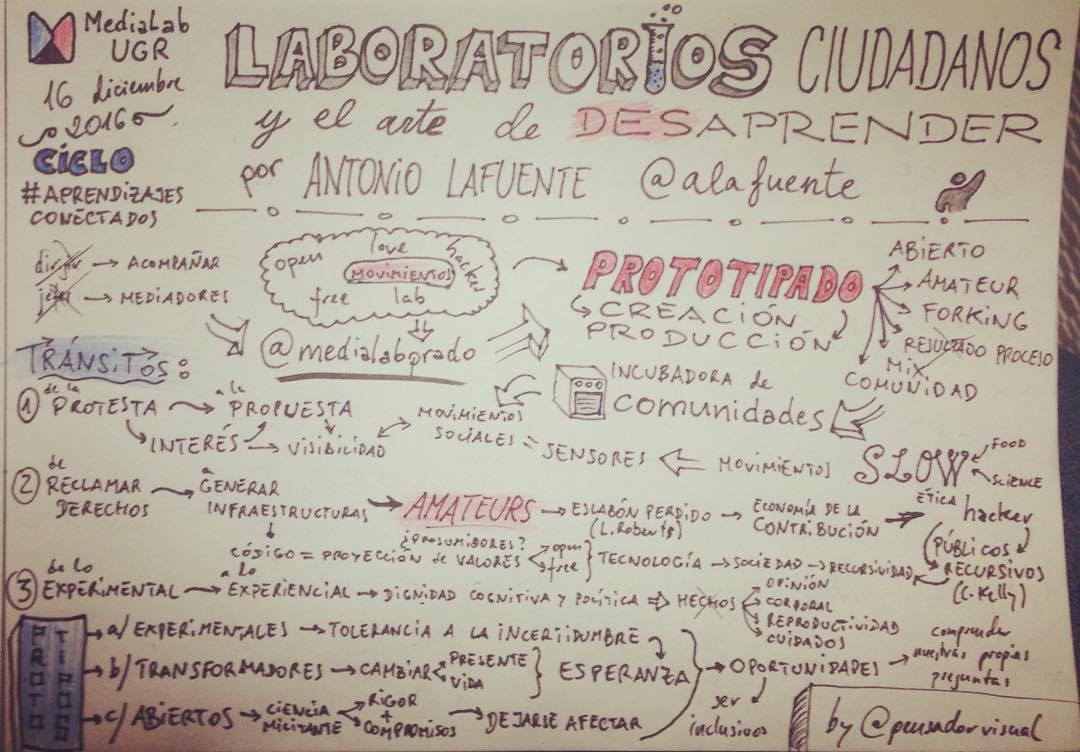 MediaLab
UGR
16 diciembre
2016
CICLO
#APRENDIZAJES
CONECTADOS
LABORATORIOS CIUDADANOS
y el arte de DESAPRENDER
por ANTONIO LAFUENTE @alafuente
dirigir → ACOMPAÑAR
jefes → MEDIADORES
open love hacker
MOVIMIENTOS
free lab
@medialabprado
PROTOTIPADO
CREACIÓN
PRODUCCIÓN
ABIERTO
AMATEUR
FORKING
RESULTADO PROCESO
MIX
COMUNIDAD
INCUBADORA de
comunidades
TRÁNSITOS:
1 de la PROTESTA → a la PROPUESTA
INTERÉS → VISIBILIDAD
MOVIMIENTOS
SOCIALES = SENSORES
MOVIMIENTOS SLOW
FOOD
SCIENCE
2 de RECLAMAR
DERECHOS
a GENERAR
INFRAESTRUCTURAS → AMATEURS → ESLABÓN PERDIDO → ECONOMÍA DE LA
(L. Roberts) CONTRIBUCIÓN
ÉTICA hacker
¿PROSUMIDORES?
CÓDIGO = PROYECCIÓN de VALORES open
free
TECNOLOGÍA → SOCIEDAD → RECURSIVIDAD
(PÚBLICOS
RECURSIVOS
(C. Kelly)
3 de lo EXPERIMENTAL → a lo EXPERIENCIAL → DIGNIDAD COGNITIVA Y POLÍTICA ⇒ HECHOS
OPINIÓN
CORPORAL
REPRODUCTIVIDAD
CUIDADOS
PROTO
TIPOS
a/ EXPERIMENTALES → TOLERANCIA A LA INCERTIDUMBRE
b/ TRANSFORMADORES → CAMBIAR PRESENTE
VIDA
ESPERANZA
c/ ABIERTOS → CIENCIA
MILITANTE
RIGOR
+
COMPROMISOS
→ DEJARSE AFECTAR
→ OPORTUNIDADES → comprender
nuestras propias
preguntas
ser
inclusivos
by @pensadorvisual